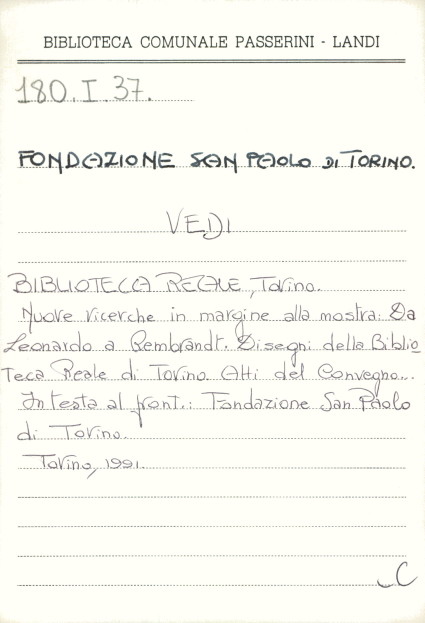 BIBLIOTECA COMUNALE PASSERINI - LANDI
180.I.37.
FONDAZIONE SAN PAOLO DI TORINO.
VEDI
BIBLIOTECA REALE, Torino.
Nuove ricerche in margine alla mostra: Da
Leonardo a Rembrandt. Disegni della Biblio_
teca Reale di Torino. Atti del Convegno...
In testa al front.: Fondazione San Paolo
di Torino.
Torino, 1991.
_C